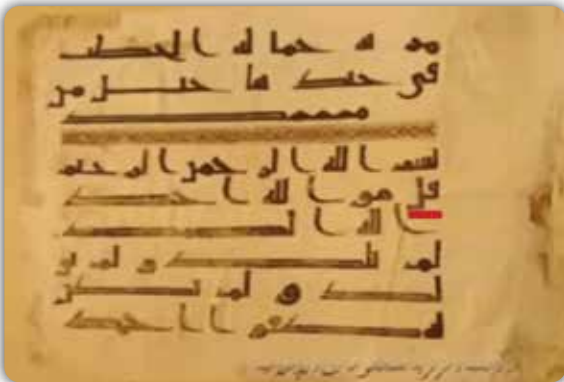 مر ته حماله الحطب
في جيد ها حبل من
مسد
بسم الله الرحمن الرحيم
قل هو الله احد
الله الصمد
لم يلد و لم يو
لد و لم يكن
له كفوا احد